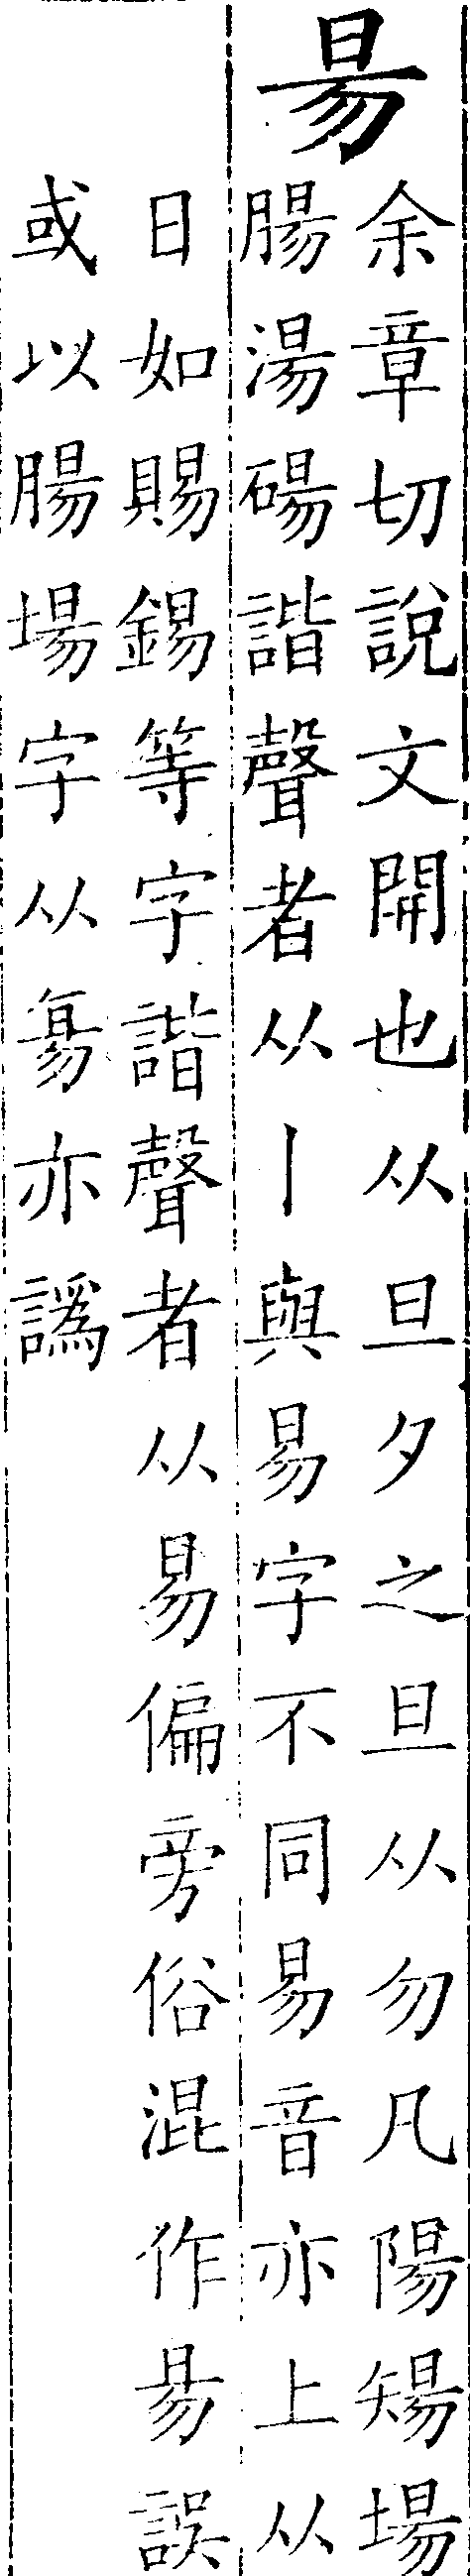 昜
余章切說文開也从旦夕之旦从勿凡陽𥏻場
腸湯碭諧聲者从丨與易字不同易音亦上从
日如賜錫等字諧聲者从易偏旁俗混作昜誤
或以腸場字从亦譌